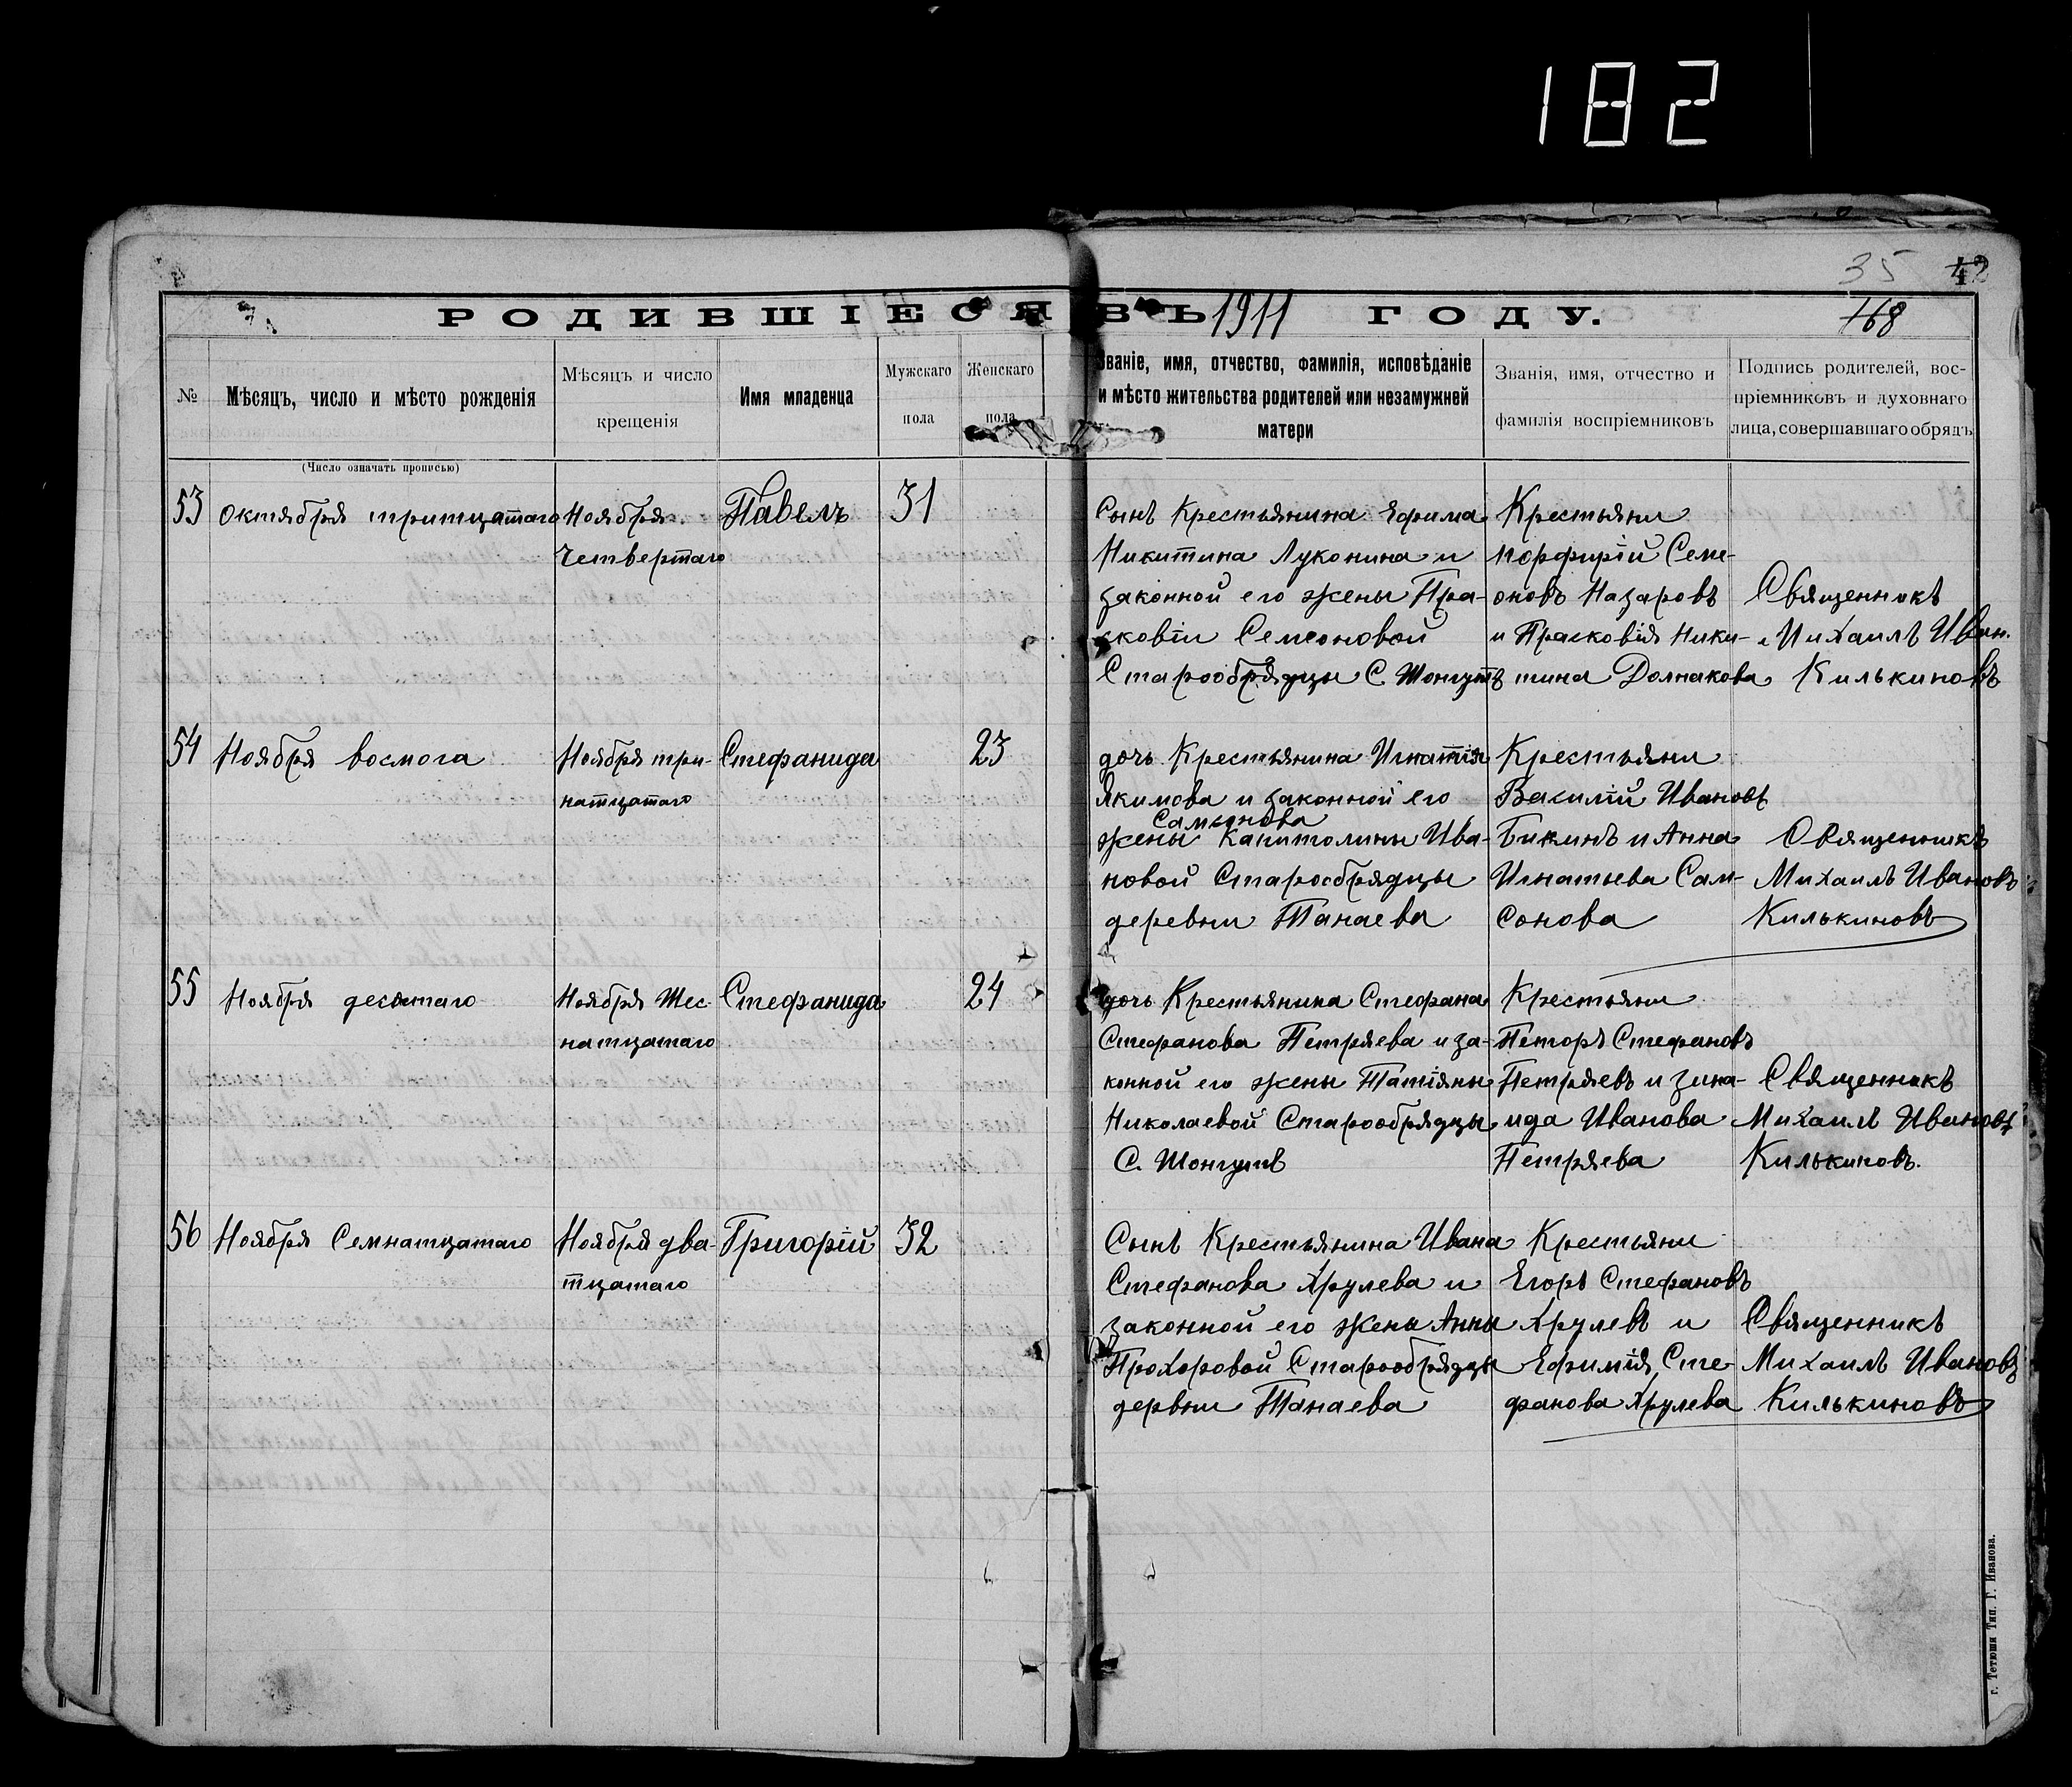 182
35 42
РОДИВШІЕСЯ ВЪ 1911 ГОДУ.
168
№
Мѣсяцъ, число и мѣсто рожденія
(Число означать прописью)
Мѣсяцъ и число
крещенія
Имя младенца
Мужскаго
пола
Женскаго
пола
Званіе, имя, отчество, фамилія, исповѣданіе
и мѣсто жительства родителей или незамужней
матери
Званія, имя, отчество и
фамилія воспріемниковъ
Подпись родителей, вос-
пріемниковъ и духовнаго
лица, совершавшаго обрядъ
53
Октября тритцатаго
Ноября
Четвертаго
Павелъ
31
Сынъ Крестьянина Ефима
Никитина Луконина и
законной его жены Пра-
сковіи Семеоновой
Старообрядцы С. Шонгутъ
Крестьяни
порфирій Семе-
оновъ Назаровъ
и Прасковія Ники-
тина Долнакова
Священникъ
Михаилъ Иван.
Килькиновъ
54
Ноября восмога
Ноября три-
натцатаго
Стефанида
23
дочь Крестьянина Игнатія
Якимова и законной его
Самсонова
жены Капитолины Ива-
новой Старообрядцы
деревни Танаева
Крестьяни
Василій Ивановъ
Бикинъ и Анна
Игнатьева Сам-
сонова
Священникъ
Михаилъ Ивановъ
Килькиновъ
55
Ноября десятаго
Ноября Шес-
натцатаго
Стефанида
24
дочь Крестьянина Стефана
Стефанова Петряева и за-
конной его жены Татіяны
Николаевой Старообрядцы
С. Шонгутъ
Крестьяни
Петоръ Стефановъ
Петряевъ и зина-
ида Иванова
Петряева
Священникъ
Михаилъ Ивановъ
Килькиновъ.
56
Ноября Семнатцатаго
Ноября два-
тцатаго
Григорій
32
Сынъ Крестьянина Ивана
Стефанова Хрулева и
законной его жены Анны
Прохоровой Старообрядцы
дервни Танаева
Крестьяни
Егоръ Стефановъ
Хрулевъ и
Ефимія Сте-
фанова Хрулева
Священникъ
Михаилъ Ивановъ
Килькиновъ
г. Тетюши Тип. Г. Иванова.